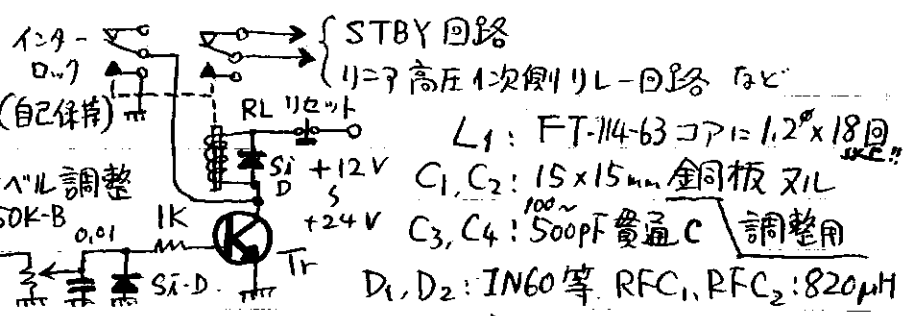 インター
ロック
(自己保持)
STBY回路
リニア高圧1次側リレー回路 など
RL リセット
Si
D
+12V
S
+24V
ベル調整
50K-B
0.01
1K
Si-D
Tr
L1: FT-114-63コアに1.2φ×18回
C1, C2: 15×15mm 銅板
調整用
100~
C3, C4: 500pF 貫通C
D1, D2: 1N60等 RFC1, RFC2: 820μH